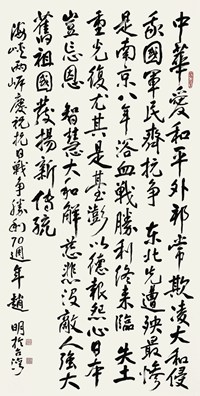 中華愛和平外邦常欺凌大和侵
我國軍民齊抗爭 东北先遭殃最慘
是南京八年浴血戰勝利終来臨 失土
重光復尤其是臺澎以德報怨心日本
豈忘恩 智慧大和解慈悲沒敵人強大
舊祖國發揚新傳統
海峽兩岸慶祝抗日戰爭勝利70週年 趙
明於台灣